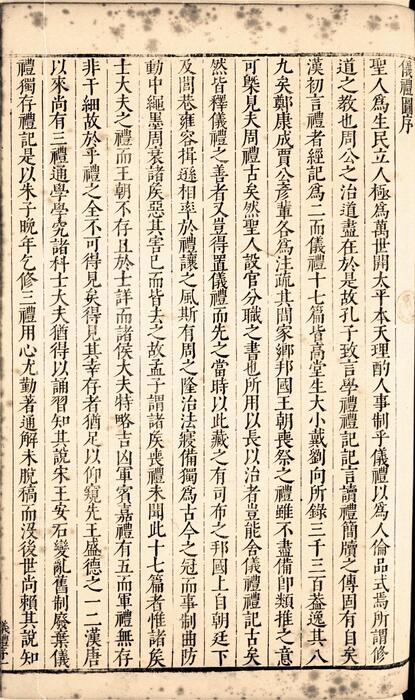 儀禮圖序
聖人爲生民立人極爲萬世開太平本天理酌人事制乎儀禮以爲人倫品式焉所謂修
道之教也周公之治道盡在於是故孔子致言學禮禮記記言讀禮簡牘之傳固有自矣
漢初言禮者經記爲二而儀禮十七篇皆高堂生大小戴劉向所錄三千三百蓋逸其八
九矣鄭康成賈公彥輩各爲注疏其間家鄉邦國王朝喪祭之禮雖不盡備卽類推之意
可槩見夫周禮古矣然聖人設官分職之書也所用以長以治者豈能舍儀禮禮記古矣
然皆釋儀禮之善者又豈得置儀禮而先之當時以此藏之有司布之邦國上自朝廷下
及閭巷雍容揖遜相率於禮讓之風斯有周之隆治法寖備獨爲古今之冠而事制曲防
動中繩墨周衰諸侯惡其害已而皆去之故孟子謂諸侯喪禮未聞此十七篇者惟諸侯
士大夫之禮而王朝不存且於士詳而諸侯大夫特略吉凶軍賓嘉禮有五而軍禮無存
非干細故於乎禮之全不可得見矣得見其幸存者猶足以仰窺先王盛德之一二漢唐
以來尚有三禮通學學究諸科士大夫猶得以誦習知其說宋王安石變亂舊制廢棄儀
禮獨存禮記是以朱子晚年乞修三禮用心尤勤著通解未脫稿而沒後世尚賴其說知
儀禮序